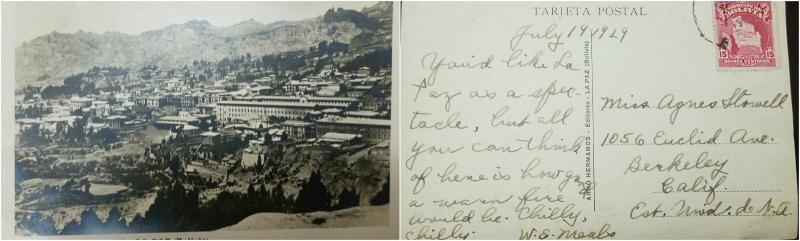 LA PAZ (Bolivia)
TARJETA POSTAL
July 19 1929
You'd like La
Paz as a spec-
tacle, but all
you can think
of here is how good
a warm fire
would be. Chilly,
chilly. W.E. Meals
HERMANOS - Editores - LA PAZ (Bolivia)
BOLIVIA
15 15
QUINCE CENTAVOS
Miss Agnes Stowell
1056 Euclid Ave.
Berkeley
Calif.
Est. Unid. de N.A.